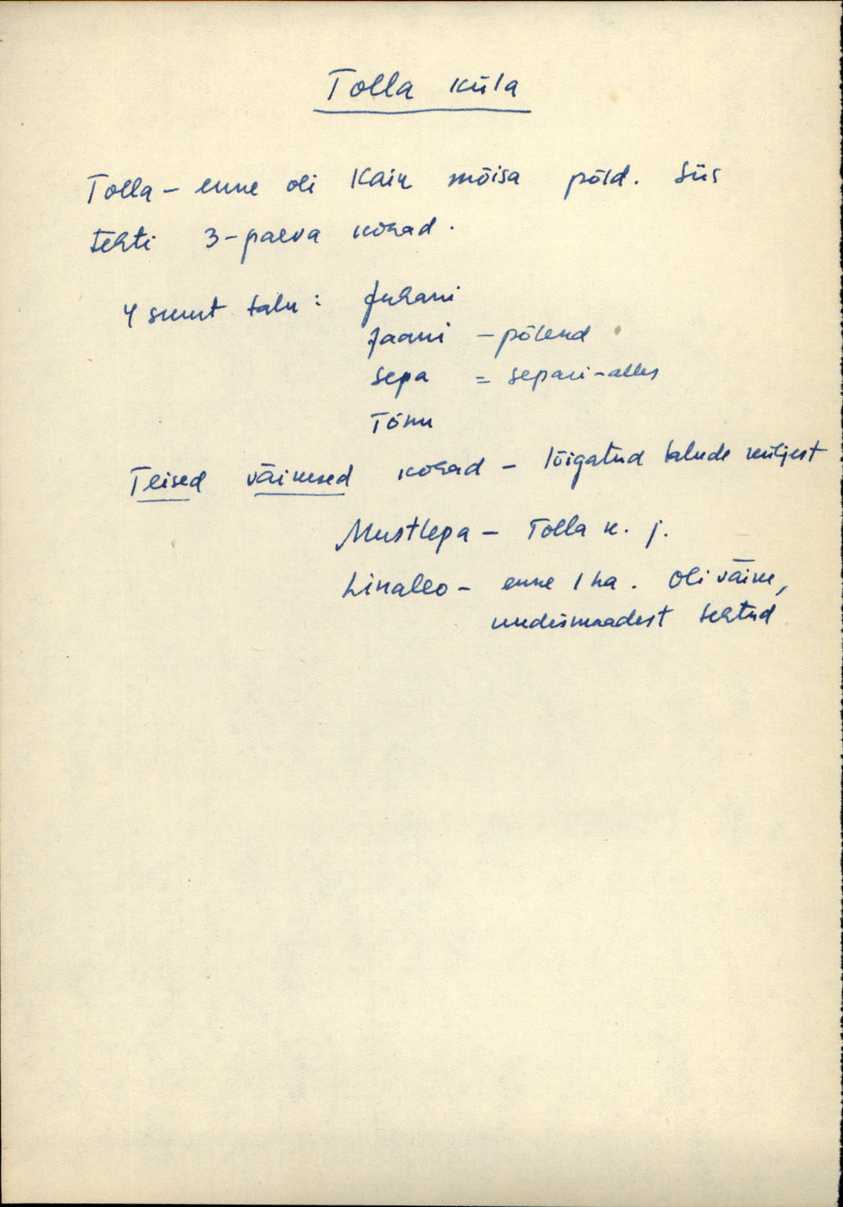 Tolla küla
Tolla – enne oli Kaiu mõisa põld. Siis
tehti 3-päeva kohad.
4 suurt talu: Juhani
Jaani – põlend
Sepa = Separi-alles
Tõnu
Teised väikesed kohad – lõigatud talude küljest
Mustlepa – Tolla k. j.
Linaleo – enne 1 ha. Oli väike,
uudismaadest tehtud